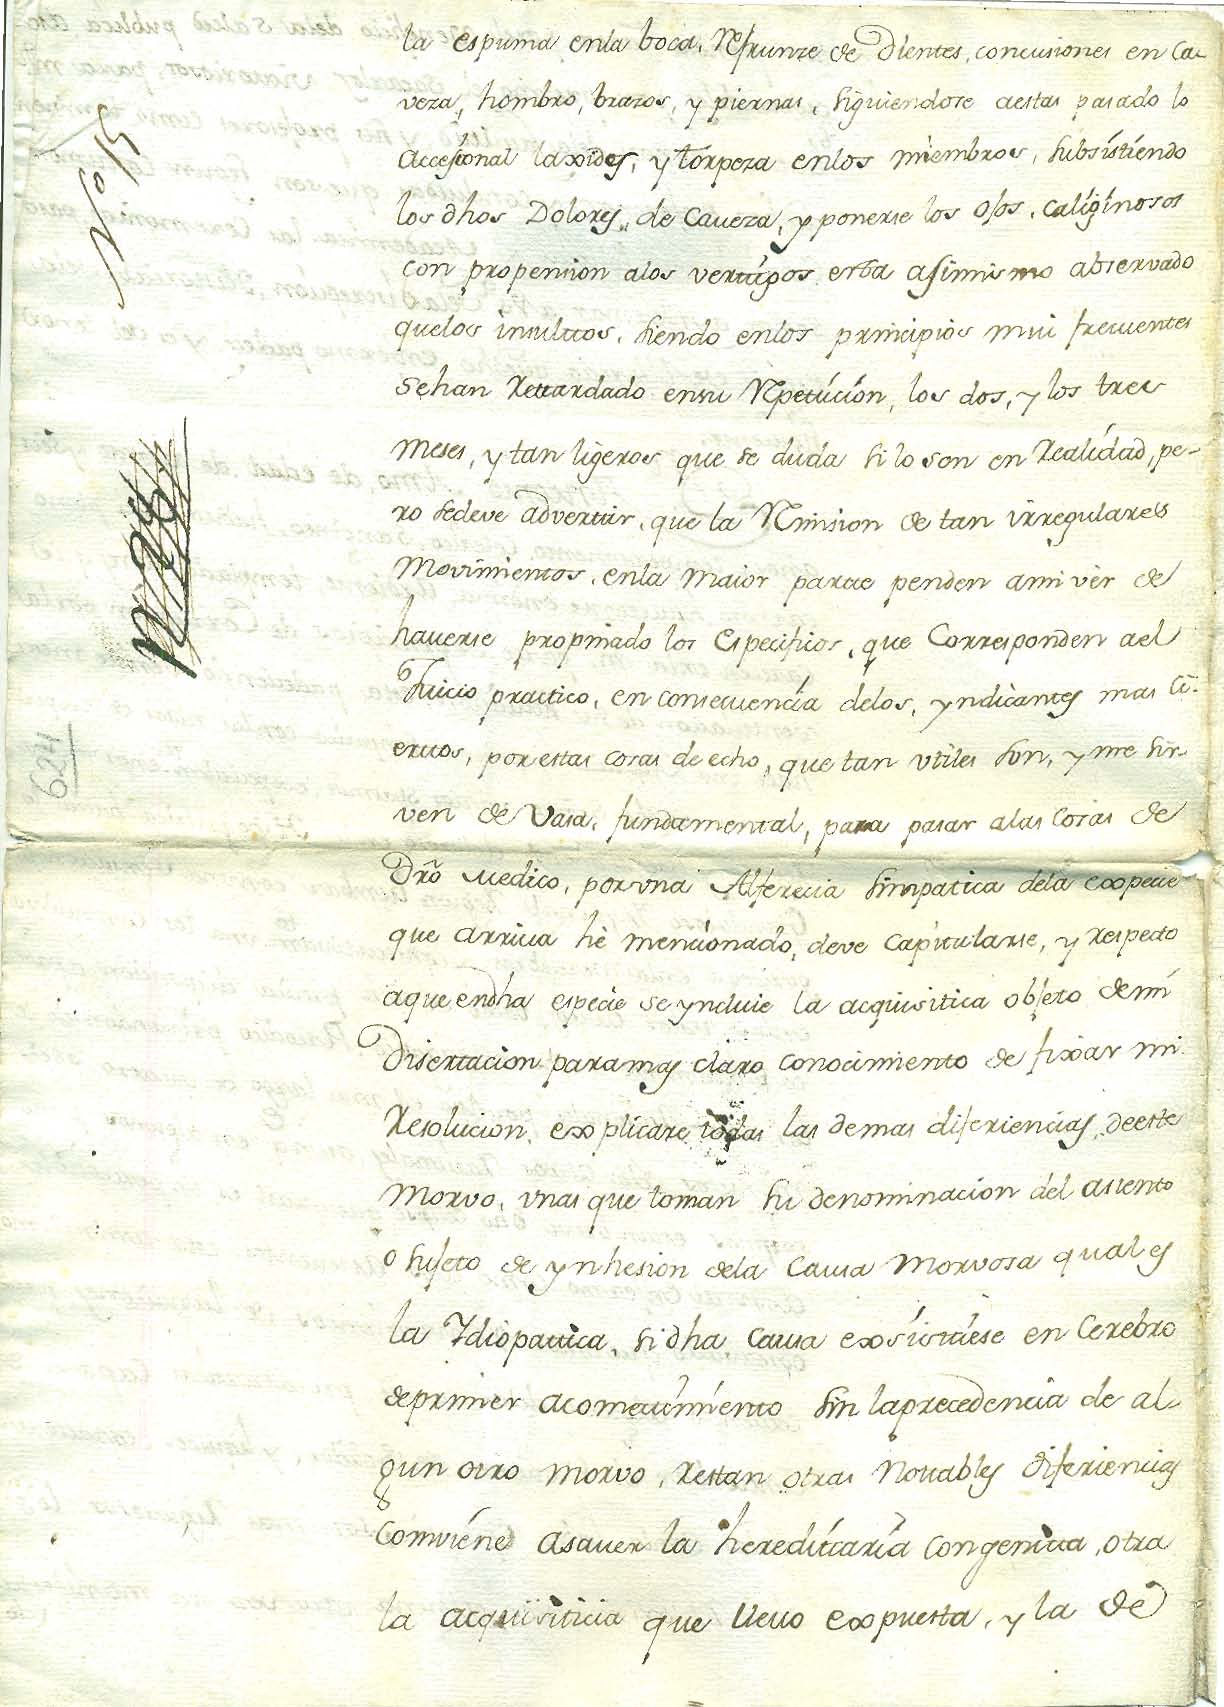 la espuma enla boca, Refrunze de Dientes, concusiones en Ca-
veza, hombro, brazos, y piernas, siguiendose aestas pasado lo
accesional laxides, y torpeza enlos miembros, subsistiendo
los dhos Dolores, de Caveza, y ponerse los ojos, caliginosos
con propension alos vertigos, esta asimismo observado
quelos insultos, siendo enlos principios mui frecuentes
sehan Retardado ensu Repeticion, los dos, y los tres
meses, y tan ligeros que se duda si lo son en Realidad, pe-
ro sedeve advertir, que la Remision de tan irregulares
Movimientos, enla maior parte penden ami ver de
haverse propinado los Especificos, que Corresponden ael
Juicio practico, en consecuencia delos, yndicantes mas Ci-
ertos, por estas cosas de echo, que tan utiles son, y me sir-
ven de Vasa, fundamental, para pasar alas Cosas de
Dro Medico, por una Alferecia simpatica dela expecie
que arriva hè mencionado, deve Capitularse, y respecto
aque endha especie se yncluie la acquisitica objeto demi
Disertacion para mas claro conocimiento de fixar mi
Resolucion, explicare todas las demas diferiencias, deeste
Morvo, unas que toman su denominacion del asiento
o sujeto de ynhesion dela Causa Morvosa qual es
la Idiopatica, si dha causa existiese en Cerebro
deprimer acometimiento sin laprecedencia de al-
gun otro morvo, Restan otras Notables diferiencias
comviene asaver la hereditaria congenita, otra
la acquisiticia que llevo expuesta, y la de
Nº 15
624